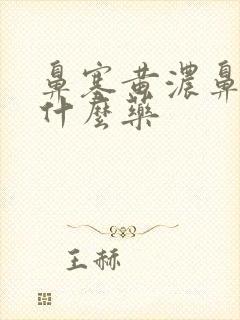 鼻塞黄濃鼻
什麼藥
王赫